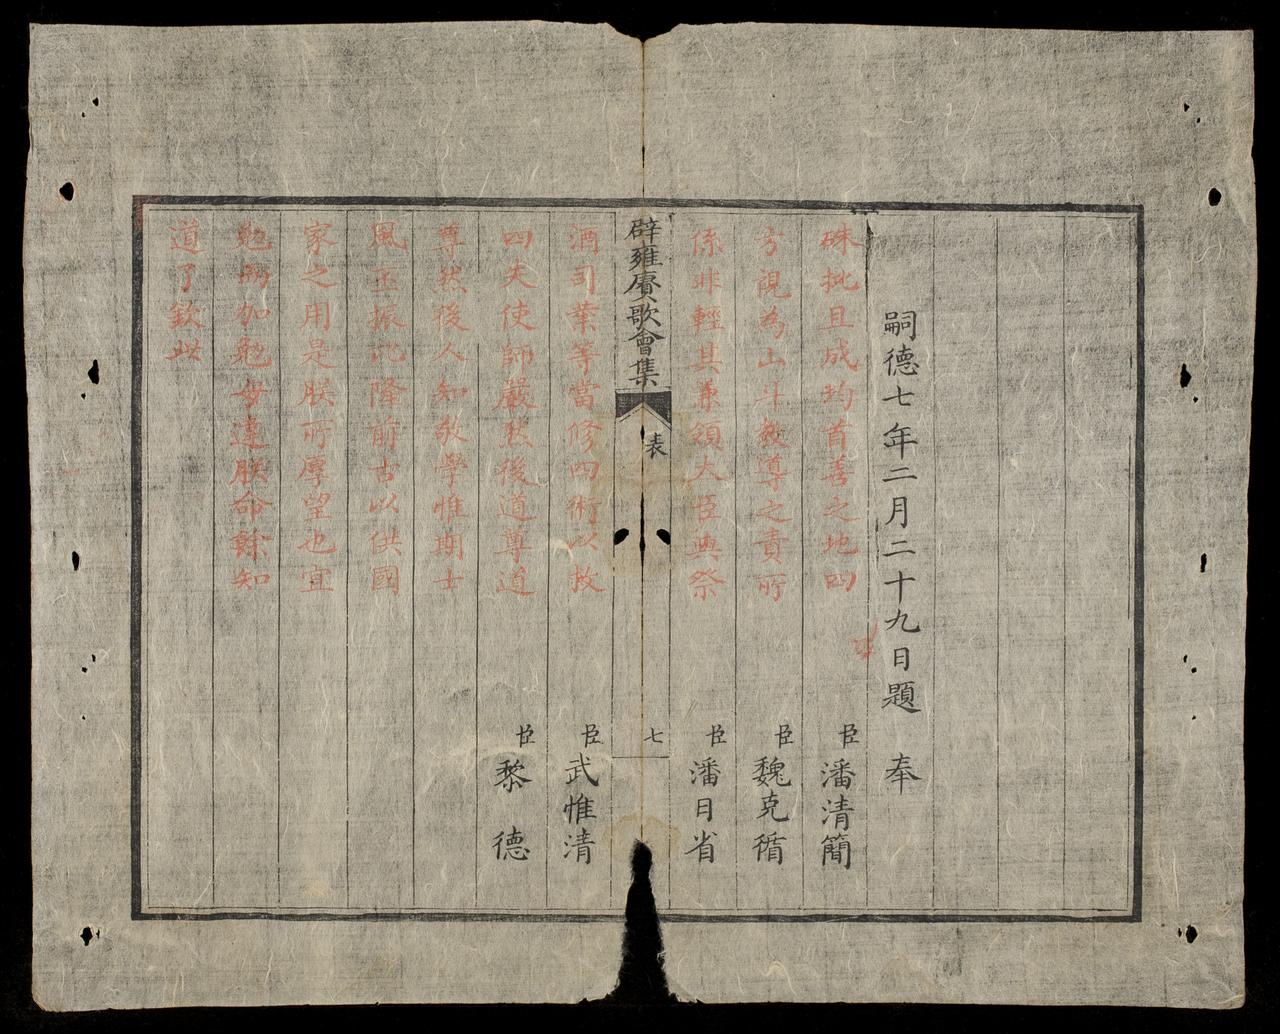 嗣德七年二月二十九日題 奉
硃批且成均首善之地四
臣潘清簡
方視為山斗教導之責所
臣魏克循
係非輕其兼領大臣與祭
臣潘日省
辟雍賡歌會集 表 七
酒司業等當修四術以教
臣武惟清
四夫使師嚴然後道尊道
臣黎 德
尊然後人知敬學惟期士
風丕振比隆前古以供國
家之用是朕所厚望也宜
勉而加勉毋違朕命餘知
道了欽此